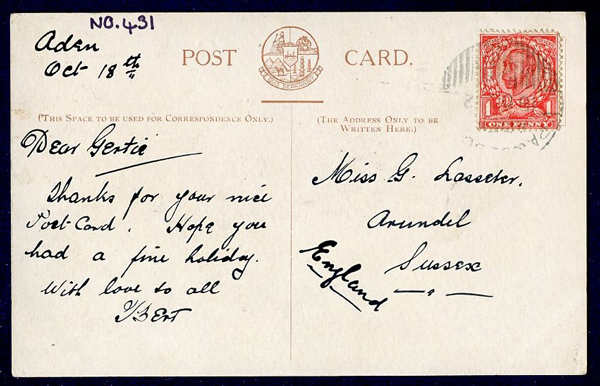 NO. 431
Aden
Oct 18th
POST CARD.
(This Space to be used for Correspondence Only.)
(The Address Only to be
Written Here.)
Dear Gertie
Thanks for your nice
Post-Card. Hope you
had a fine holiday.
With love to all
Bert
Miss G. Lasseter.
Arundel
Sussex
England
1 1
ONE PENNY